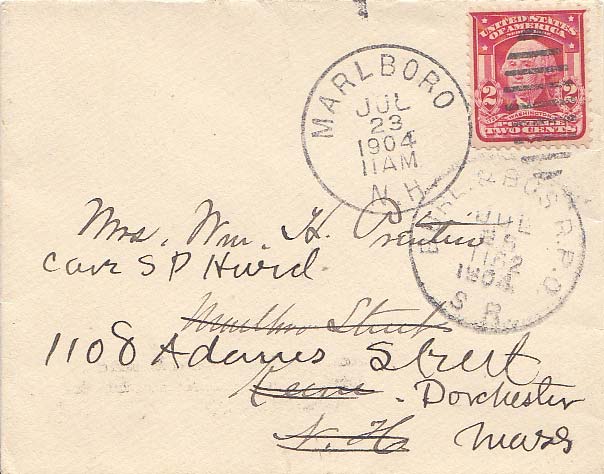 UNITED STATES
OF AMERICA
2 WASHINGTON 2
TWO CENTS
MARLBORO
JUL
23
1904
11 AM
N.H.
BURL. & BOS R.P.O.
JUL
1904
S R
Mrs. Wm. H. Prentiss
Care S P Hurd
Marlboro Street
1108 Adams Street
Keene Dorchester
N. H. Mass